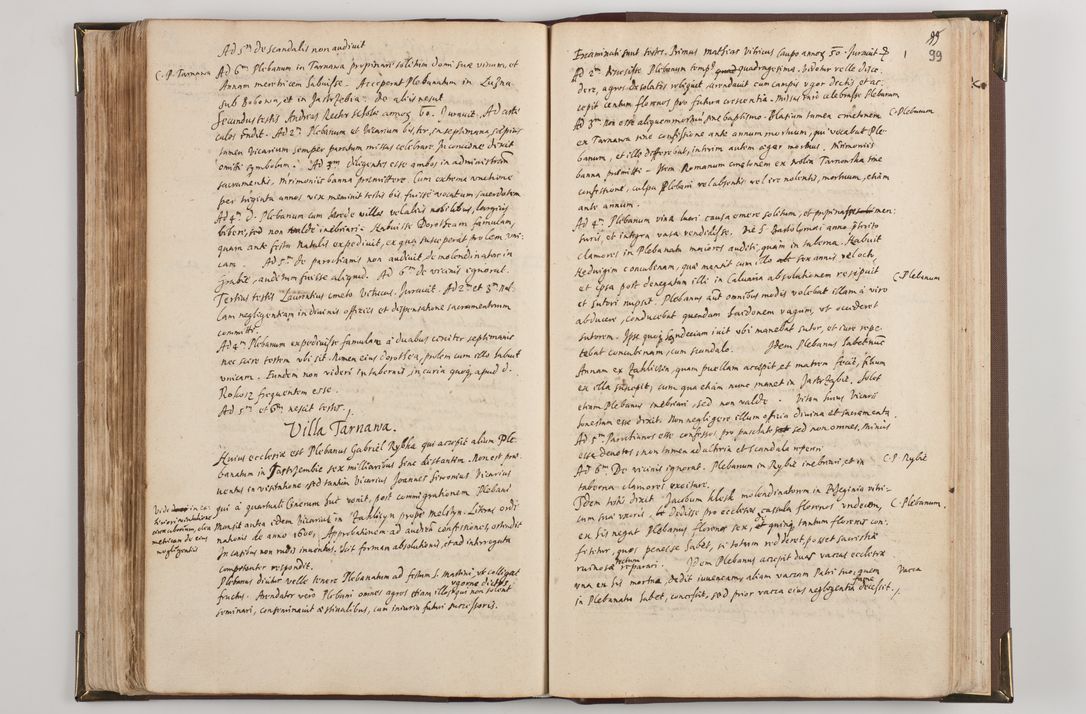 Ad 5m de scandalis non audivit
C. P. Tarnawa
Ad 6m Plebanum in Tarnawa propinare solitum domi suæ vinum, et
Annam meretricem habuisse. Acceperat Plebanatum in Luzna
sub Bobowa, et in Jastrzebia. De aliis nescit
Secundus testis Andreas Rector scholæ annor 50. Juravit. Ad arti
culos respondit. Ad 2m Plebanum et Vicarium bis, ter, in septimana, sæpius
tamen Vicarium semper paratum missas celebrare. In concione dixit
omitti symbolum. Ad 3m Diligentes esse ambos in administratione
sacramentor, Matrimoniis banna præmittere. Cum extrema unctione
per triginta annos vix meminit testis bis fuisse vocatum sacerdotem
Ad 4m D. Plebanum cum hærede villæ vel aliis nobilibus, largius
bibere, sed non valde inebriari. Habuisse Dorotheam famulam,
quam ante festum Natalis expedivit, ex qua susceperat prolem uni
cam. Ad 5m De parochianis non audivit, de molendinatore in
audivit fuisse aliquid. Ad 6m de vicinis ignorat.
Tertius testis Laurentius cmeto Vitricus. Juravit. Ad 2m et 3m nul
lam negligentiam in divinis officiis et dispensatione sacramentorum
committi.
Ad 4m Plebanum expedivisse famulam a duabus circiter septimanis
nec scire testem ubi sit. Nomen eius Dorothea, prolem cum illo habuit
unicam. Eundem non videri in tabernis, in curia quoq apud D.
Rokosz frequentem esse.
Ad 5m et 6m nescit testis.
Villa Tarnawa.
Huius ecclesiæ est Plebanus Gabriel Rybka qui accepit alium Ple
banatum in Jastrzembie sex milliaribus hinc distantem. Non est præ
sentus in visitatione sed tantum Vicarius Joannes Simonius Vicarius
qui a quartuali Cinerum huc venit, post commigrationem Plebani
Mansit antea idem Vicarius in Zahliczyn prope Melstyn. Literas ordi
nationis de anno 1600, Approbationem ad audiendas confessiones, ostendit
In casibus non rudis inventus. Scit formam absolutionis, et ad interrogata
competenter respondit.
Plebanus dicitur velle tenere Plebanatum ad festum S. Martini, ut colligat
fructus. Arendator vero Plebani omnes agros etiam illos qui non solent
ugorne dictos
seminari, conseminavit æstivalibus, cum iniuria futuri successoris.
99
99
Examinati sunt testes. Primus Mathias Vitricus Caupo annor 50. Juravit
Ad 2m Discessisse Plebanum tempe quadragesimæ. Videtur velle disce
dere, agros desolatos reliquit arendavit cum campis ugor dictis, et ac
cepit centum florenos pro futura crescentia. Missas raro celebrasse Plebanum
C. Plebanum
Ad 3m Non esse aliquem mortuum sine baptismo. Blasium tamen cmetonem
ex Tarnawa sine confessione ante annum mortuum, qui vocabat Ple
banum, et ille differebat, interim autem æger morbus. Matrimoniis
banna præmitti. Item Romanum cmetonem ex Wola Tarnonska sine
confessione, culpa Plebani vel absentis vel ire nolentis, mortuum, etiam
ante annum.
Ad 4m Plebanum vina lucri causa emere solitum, et propinasse men
suris, et integra vasa vendidisse. Die S. Bartholomæi anno præterito
clamores in Plebanatu maiores auditi, quam in taberna. Habuit
Hedwigim concubinam, quæ mansit cum illo sex annis vel octo,
et ipsa post denegatam illi in Calwaria absolutionem respuit
C. Plebanum
et sutori nupsit. Plebanus aut omnibus modis volebat illam a viro
abducere, conducebat quendam Sardonem vagum, ut occideret
sutorem. Ipse quoq hæredeciam iuit ubi manebat sutor, et iure repe
tebat concubinam, cum scandalo. Idem Plebanus habet nunc
Annam ex Zahliczin, quam puellam accepit, et matrem fecit, filium
ex illa suscepit, cum qua etiam nunc manet in Jastrzębie. Solet
etiam Plebanus inebriari, sed non valde. Vitam huius Vicarii
honestam esse dixit. Non negligere illum officia divina et sacramenta
Ad 5m Parochianos esse confessos, pro paschate sed non omnes, minus
esse devotos, non tamen adulteria et scandala reperiri
Ad 6m De vicinis ignorat. Plebanum in Rybie inebriari, et in
C. P. Rybie
taberna clamores excitare.
Idem testis dixit Jacobum klosk molendinatorem in Rzeginia vitri
cum sui uxoris, Dedisse pro ecclesiæ casula florenos undecim,
C. Plebanum.
ex his negat Plebanus florenos sex, et quinq tantum florenos con
fitetur, quos penes se habet, si totum redderet, posset sacristia
ruinosæ tectum reparari. Idem Plebanus accepit duas vaccas ecclesiæ
una ex his mortua, Dedit iuvencam, aliam vaccam Patri suo, quem
Vacca
in Plebanatu habet, concessit, sed prior vacca eius negligentia fame decessit.